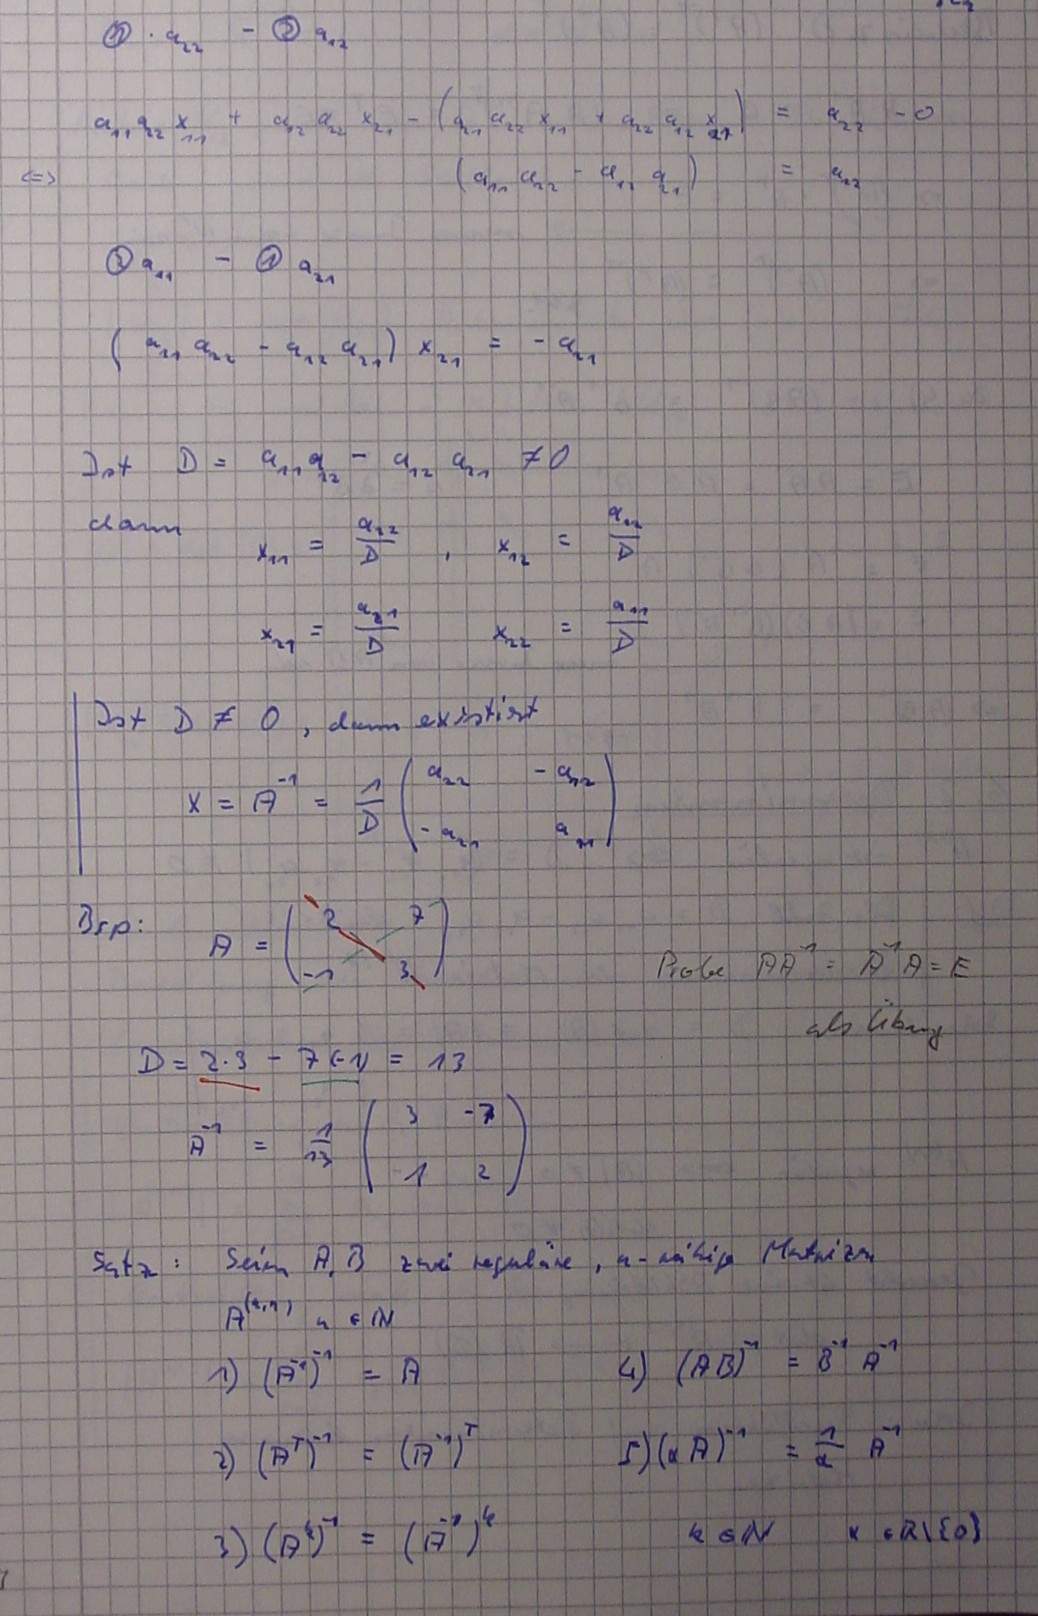 ① · a₂₂ - ② a₁₂
a₁₁ a₂₂ x₁₁ + a₁₂ a₂₂ x₂₁ - (a₂₁ a₁₂ x₁₁ + a₂₂ a₁₂ x₂₁) = a₂₂ - 0
<=> (a₁₁ a₂₂ - a₁₂ a₂₁) = a₂₂
② a₁₁ - ① a₂₁
(a₁₁ a₂₂ - a₁₂ a₂₁) x₂₁ = - a₂₁
Ist D = a₁₁ a₂₂ - a₁₂ a₂₁ ≠ 0
dann x₁₁ = a₂₂/D , x₁₂ = a₁₂/D
x₂₁ = a₂₁/D x₂₂ = a₁₁/D
Ist D ≠ 0, dann existiert
X = A⁻¹ = 1/D ( a₂₂ - a₁₂
- a₂₁ a₁₁ )
Bsp: A = ( 2 7
-1 3 )
Probe AA⁻¹ = A⁻¹A = E
als Übung
D = 2·3 - 7(-1) = 13
A⁻¹ = 1/13 ( 3 -7
1 2 )
Satz: Seien A, B zwei reguläre, n-reihige Matrizen
A⁽ⁿ'ⁿ⁾ n ∈ ℕ
1) (A⁻¹)⁻¹ = A
2) (Aᵀ)⁻¹ = (A⁻¹)ᵀ
3) (Aᵏ)⁻¹ = (A⁻¹)ᵏ
4) (AB)⁻¹ = B⁻¹ A⁻¹
5) (αA)⁻¹ = 1/α A⁻¹
k ∈ ℕ α ∈ ℝ\{0}